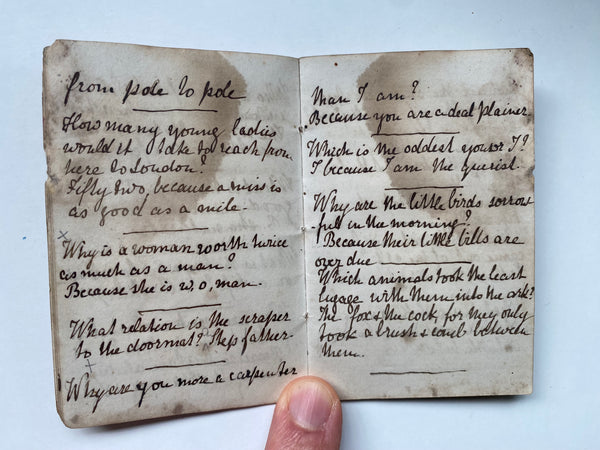 from pole to pole
How many young ladies
would it take to reach from
here to London?
Fifty two, because a miss is
as good as a mile.
x
Why is a woman worth twice
as much as a man?
Because she is w, o, man.
What relation is the scraper
to the doormat? Step father.
x
Why are you more a carpenter
than I am?
Because you are a deal plainer
Which is the oddest you or I?
I because I am the querist.
Why are the little birds sorrow
full in the morning?
Because their little bills are
over due
Which animals took the least
lugage with them into the ark?
The fox & the cock, for they only
took a brush & comb between
them.